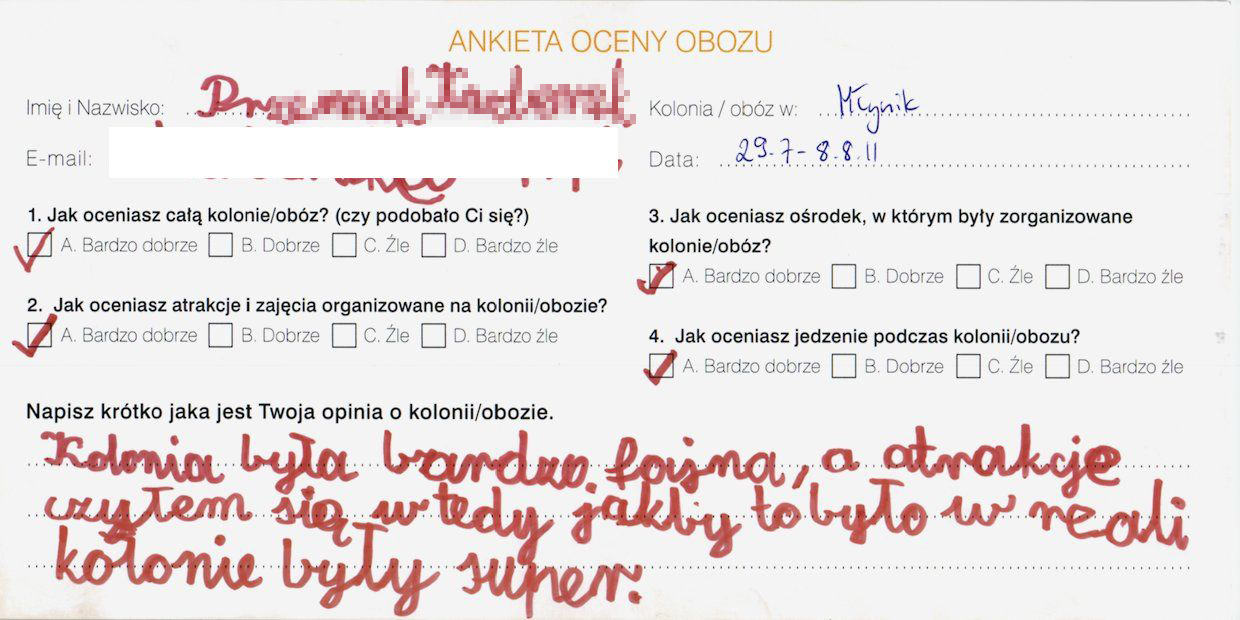 ANKIETA OCENY OBOZU
Imię i Nazwisko:
Kolonia / obóz w: Młynik
E-mail:
Data: 29.7 - 8.8.11
1. Jak oceniasz całą kolonie/obóz? (czy podobało Ci się?)
A. Bardzo dobrze B. Dobrze C. Źle D. Bardzo źle
2. Jak oceniasz atrakcje i zajęcia organizowane na kolonii/obozie?
A. Bardzo dobrze B. Dobrze C. Źle D. Bardzo źle
3. Jak oceniasz ośrodek, w którym były zorganizowane
kolonie/obóz?
A. Bardzo dobrze B. Dobrze C. Źle D. Bardzo źle
4. Jak oceniasz jedzenie podczas kolonii/obozu?
A. Bardzo dobrze B. Dobrze C. Źle D. Bardzo źle
Napisz krótko jaka jest Twoja opinia o kolonii/obozie.
Kolonia była bardzo fajna, a atrakcje
czułem się wtedy jakby to było w reali
kolonie były super.